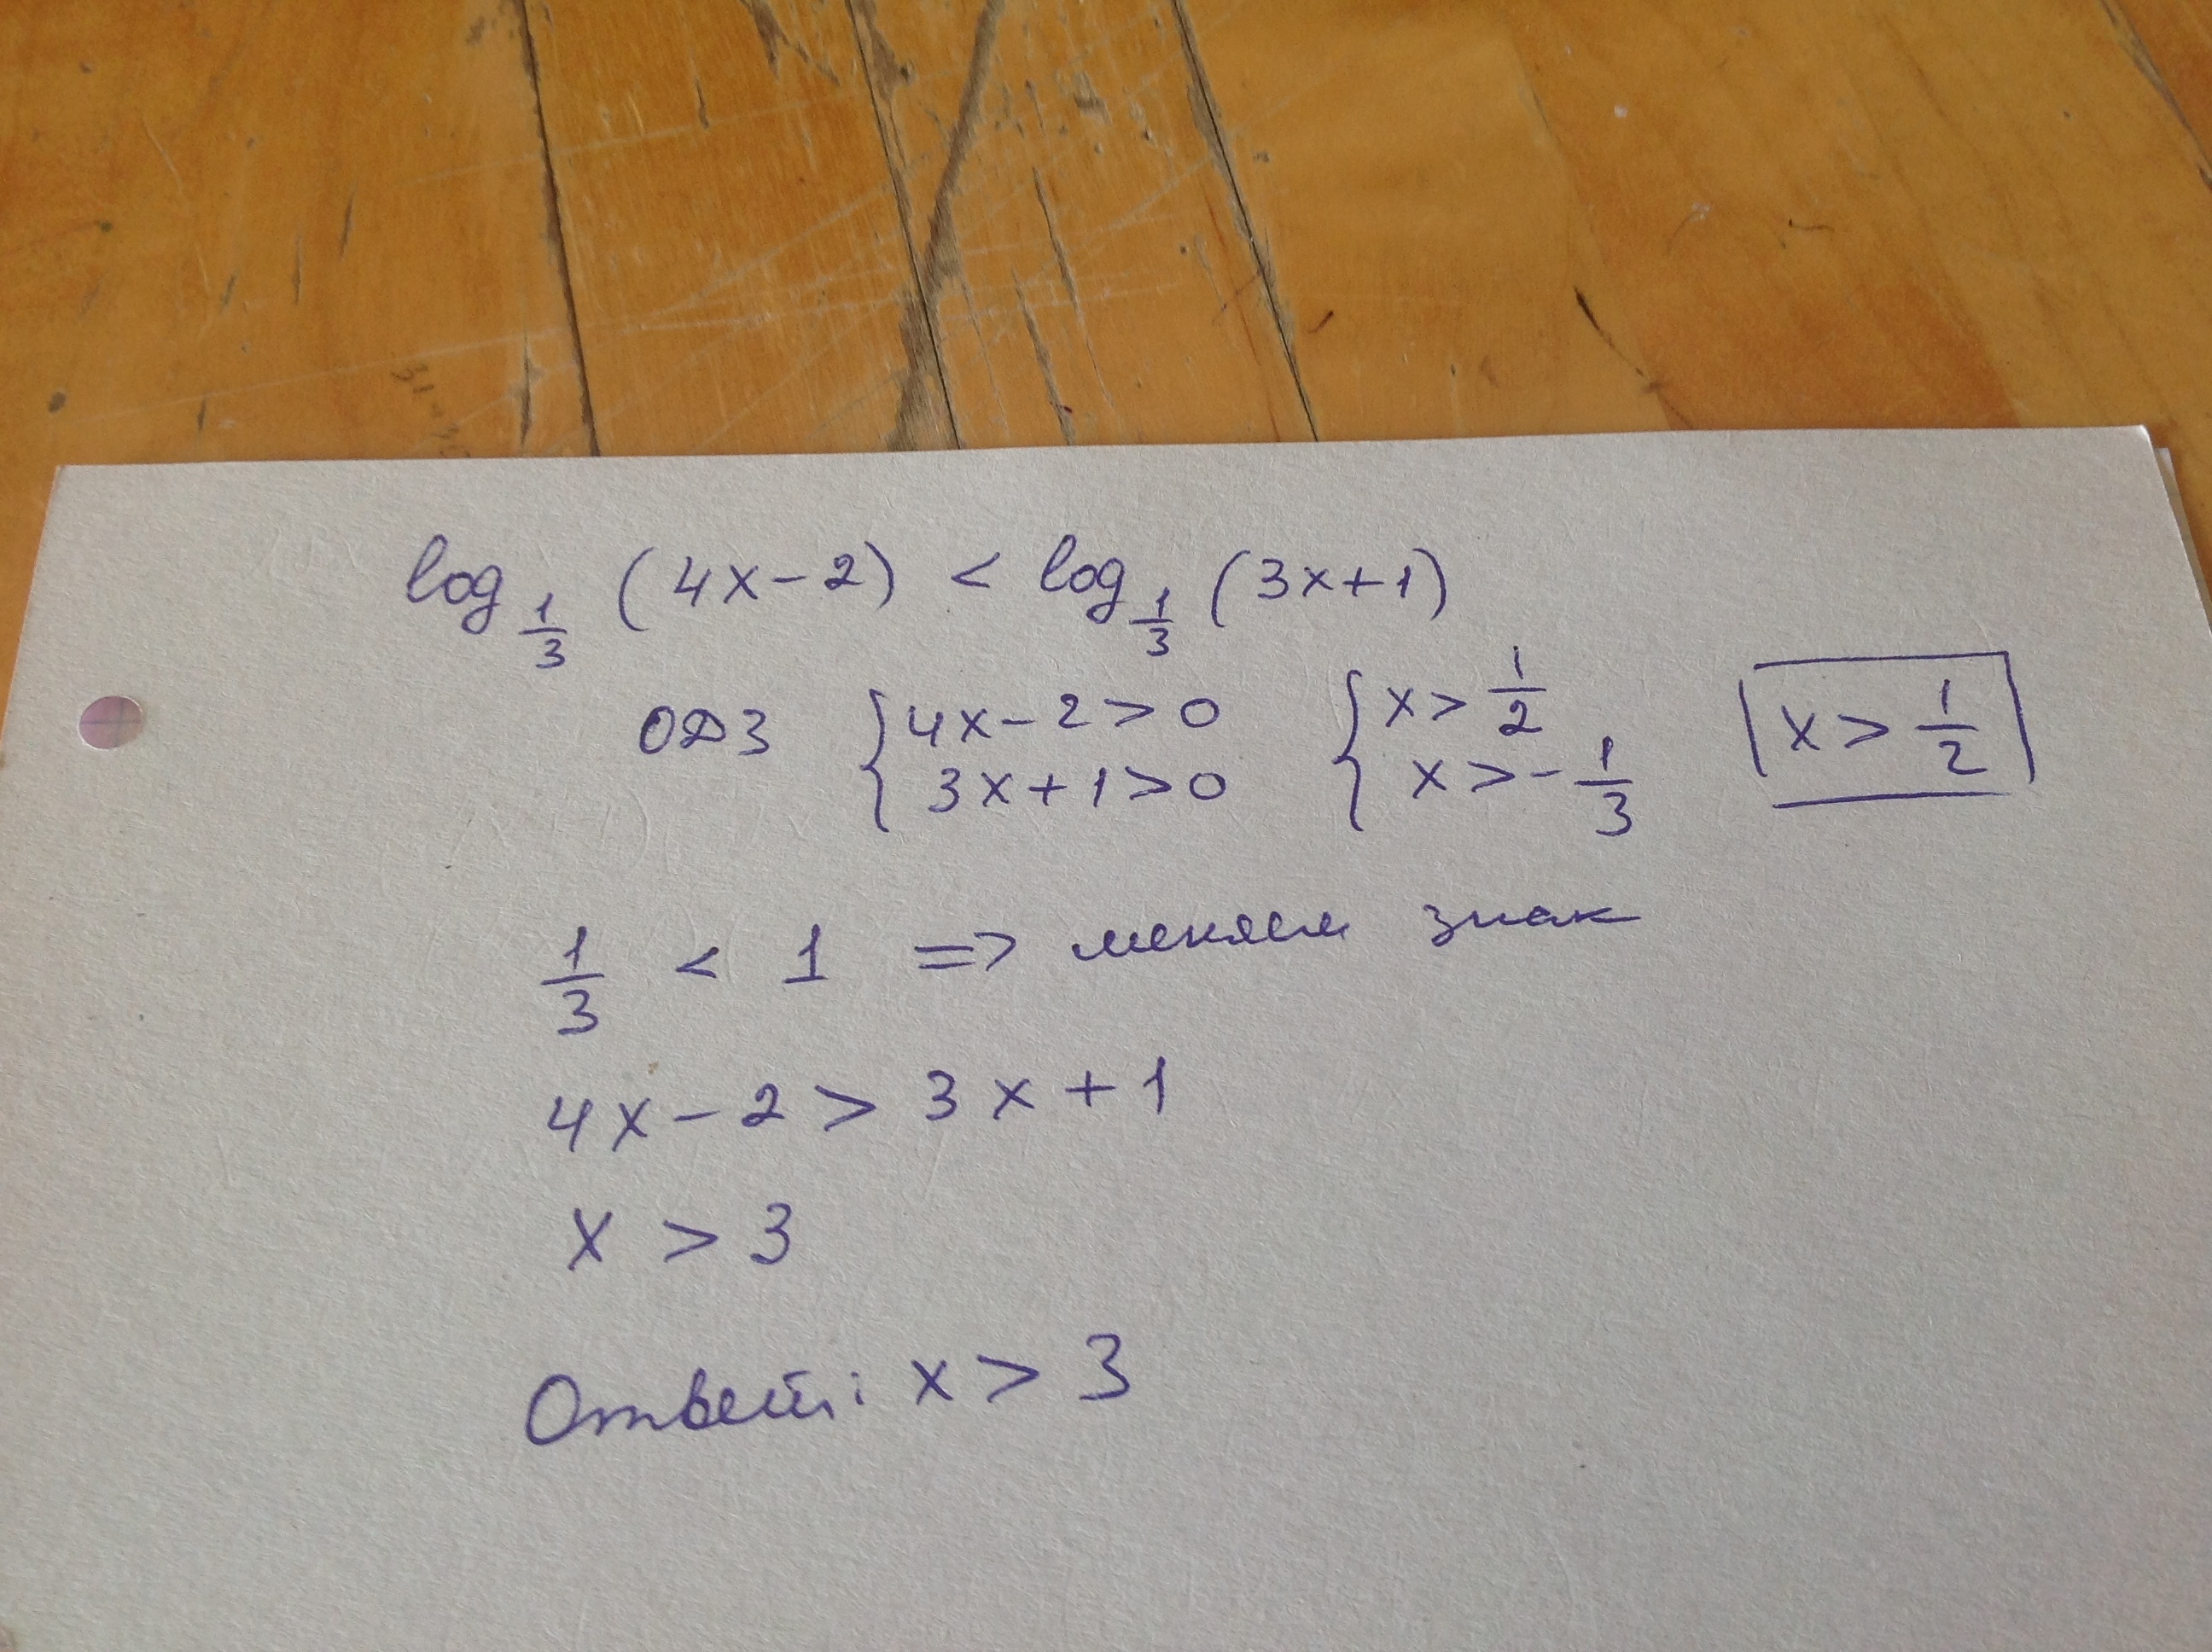 log 1/3 (4x-2) < log 1/3 (3x+1)
ОДЗ { 4x-2>0 { x> 1/2 x> 1/2
3x+1>0 x>- 1/3
1/3 < 1 => меняем знак
4x-2> 3x+1
x > 3
Ответ: x> 3